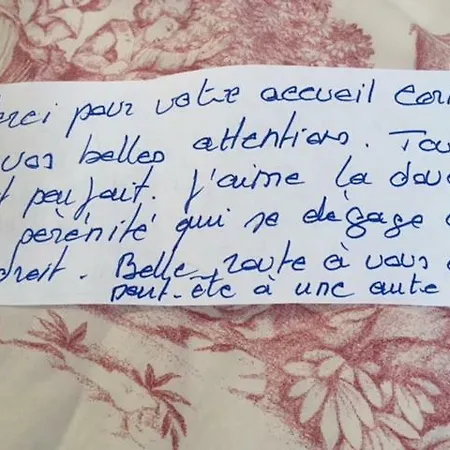 erci pour votre accueil cor
vos belles attentions. Tou
t parfait. J'aime la dou
sérénité qui se dégage d
droit. Belle route à vous
peut-ête à une autre